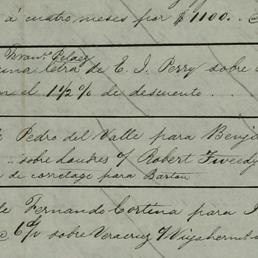 á cuatro meses por $1100..
Franc.º Pelaez
una letra de C. J. Perry sobre
el 1½ % de descuento...
Pedro del Valle para Benj
sobre Londres y Robert Tweedy
de corretage para Barton
Fernando Cortina para
6% sobre Veracruz